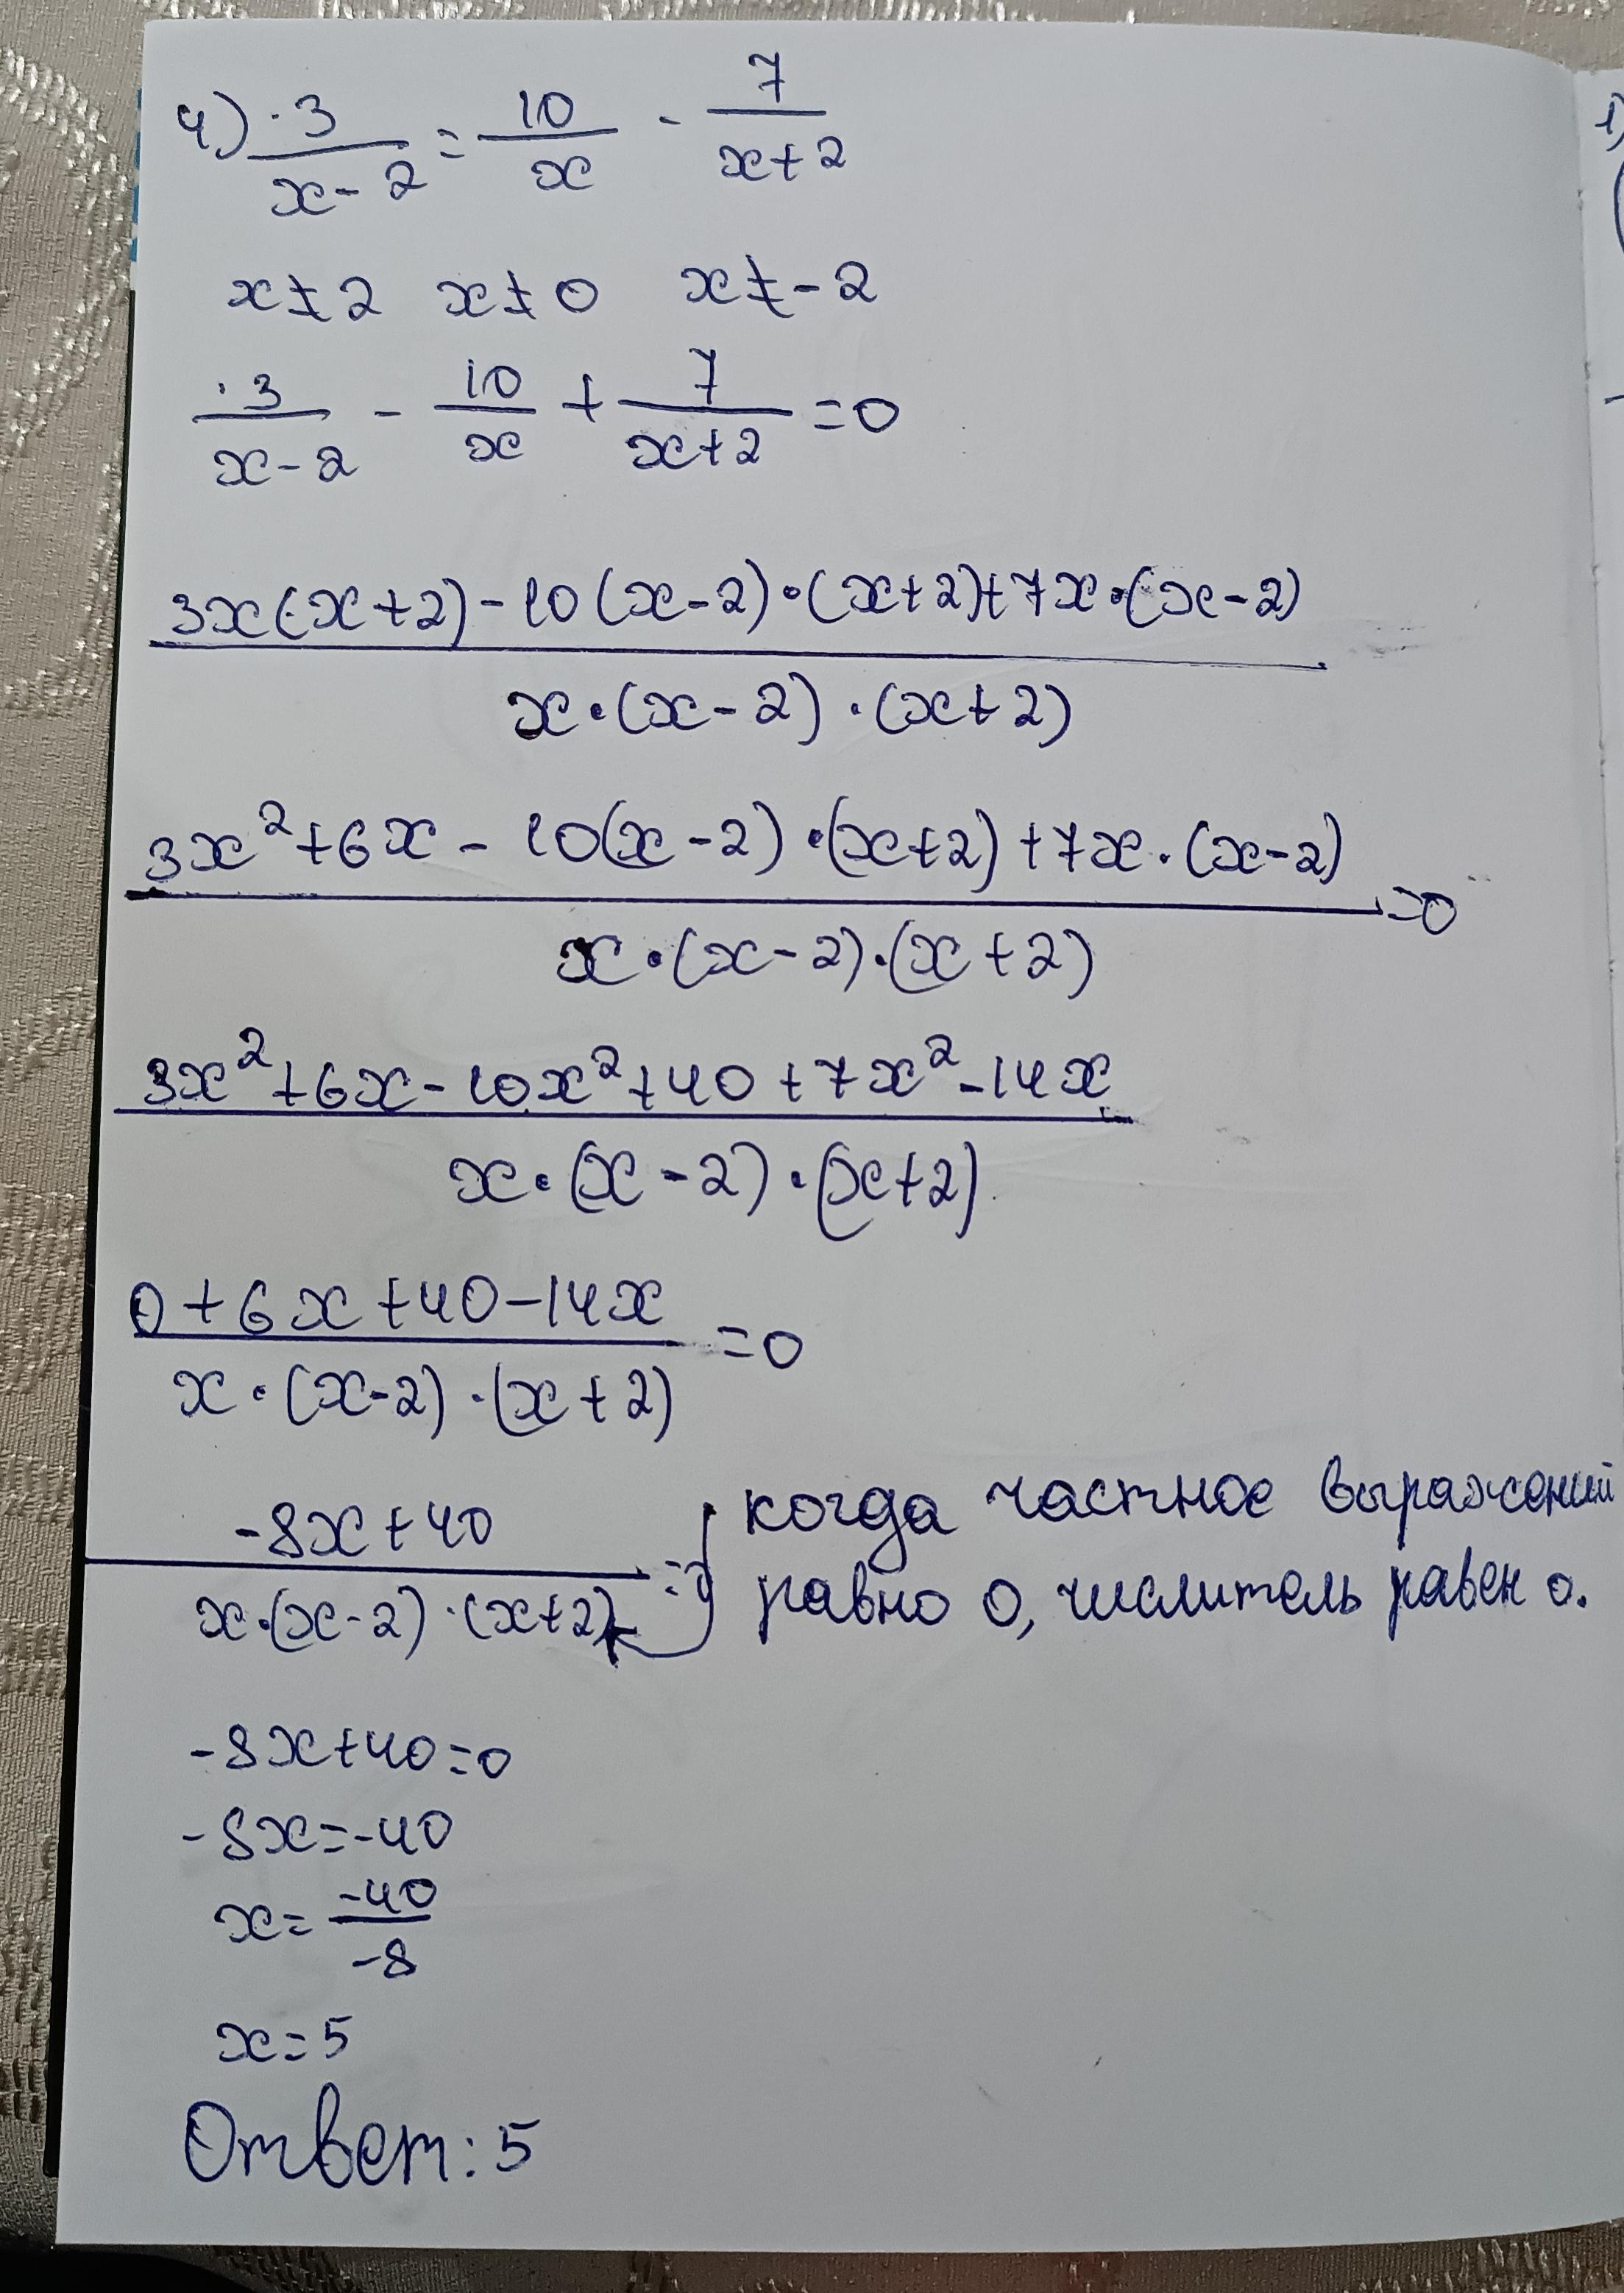 4) 3/(x-2) = 10/x - 7/(x+2)
x≠2 x≠0 x≠-2
3/(x-2) - 10/x + 7/(x+2) = 0
3x(x+2)-10(x-2)·(x+2)+7x·(x-2)
x·(x-2)·(x+2)
3x²+6x-10(x-2)·(x+2)+7x·(x-2)
=0
x·(x-2)·(x+2)
3x²+6x-10x²+40+7x²-14x
x·(x-2)·(x+2)
0+6x+40-14x
=0
x·(x-2)·(x+2)
-8x+40
x·(x-2)·(x+2)
когда частное выражений
равно 0, числитель равен 0.
-8x+40=0
-8x=-40
x= -40/-8
x=5
Ответ: 5
1)